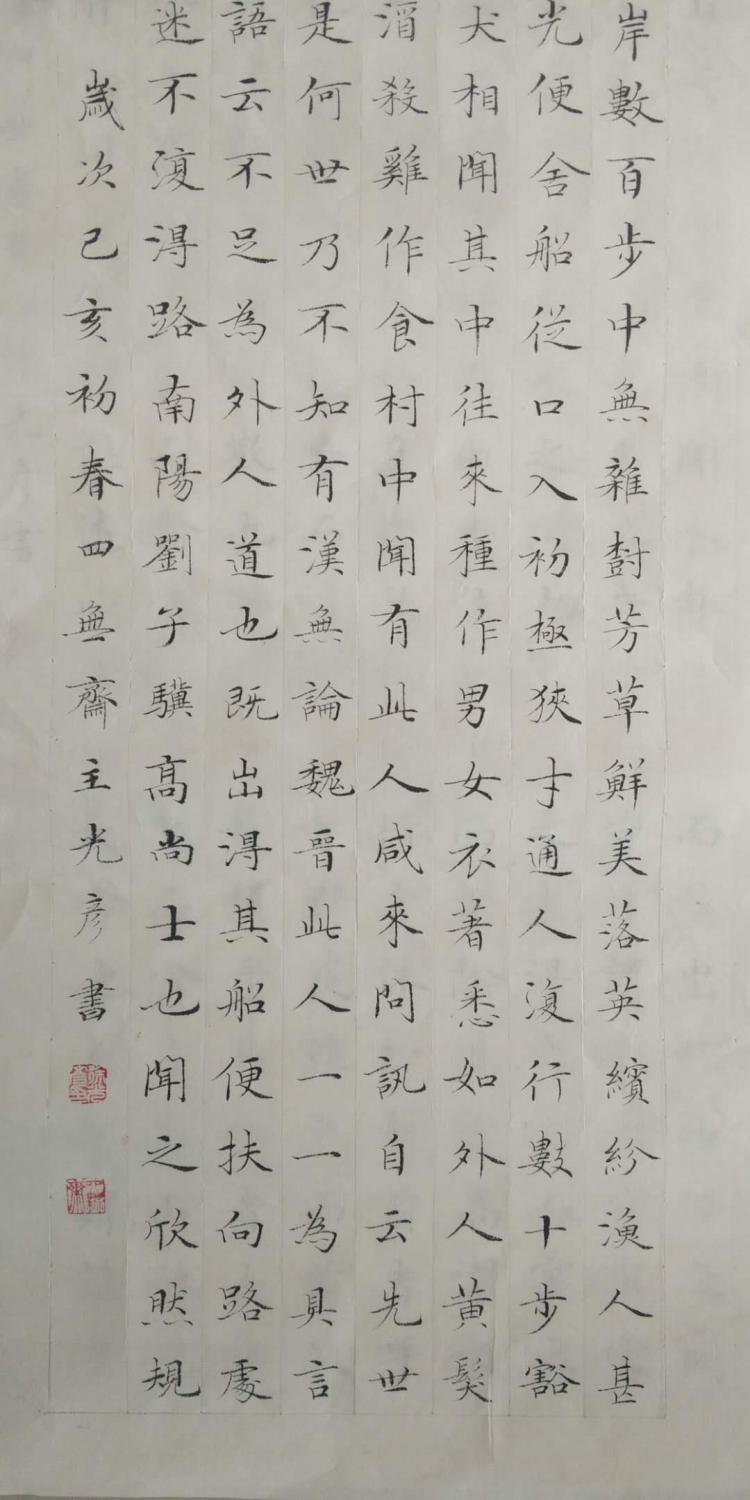 岸數百步中無雜樹芳草鮮美落英繽紛漁人甚
光便舍船從口入初極狹才通人復行數十步豁
犬相聞其中往來種作男女衣著悉如外人黃髮
酒殺雞作食村中聞有此人咸來問訊自云先世
是何世乃不知有漢無論魏晉此人一一為具言
語云不足為外人道也既出得其船便扶向路處
迷不復得路南陽劉子驥高尚士也聞之欣然規
歲次己亥初春四無齋主光彥書